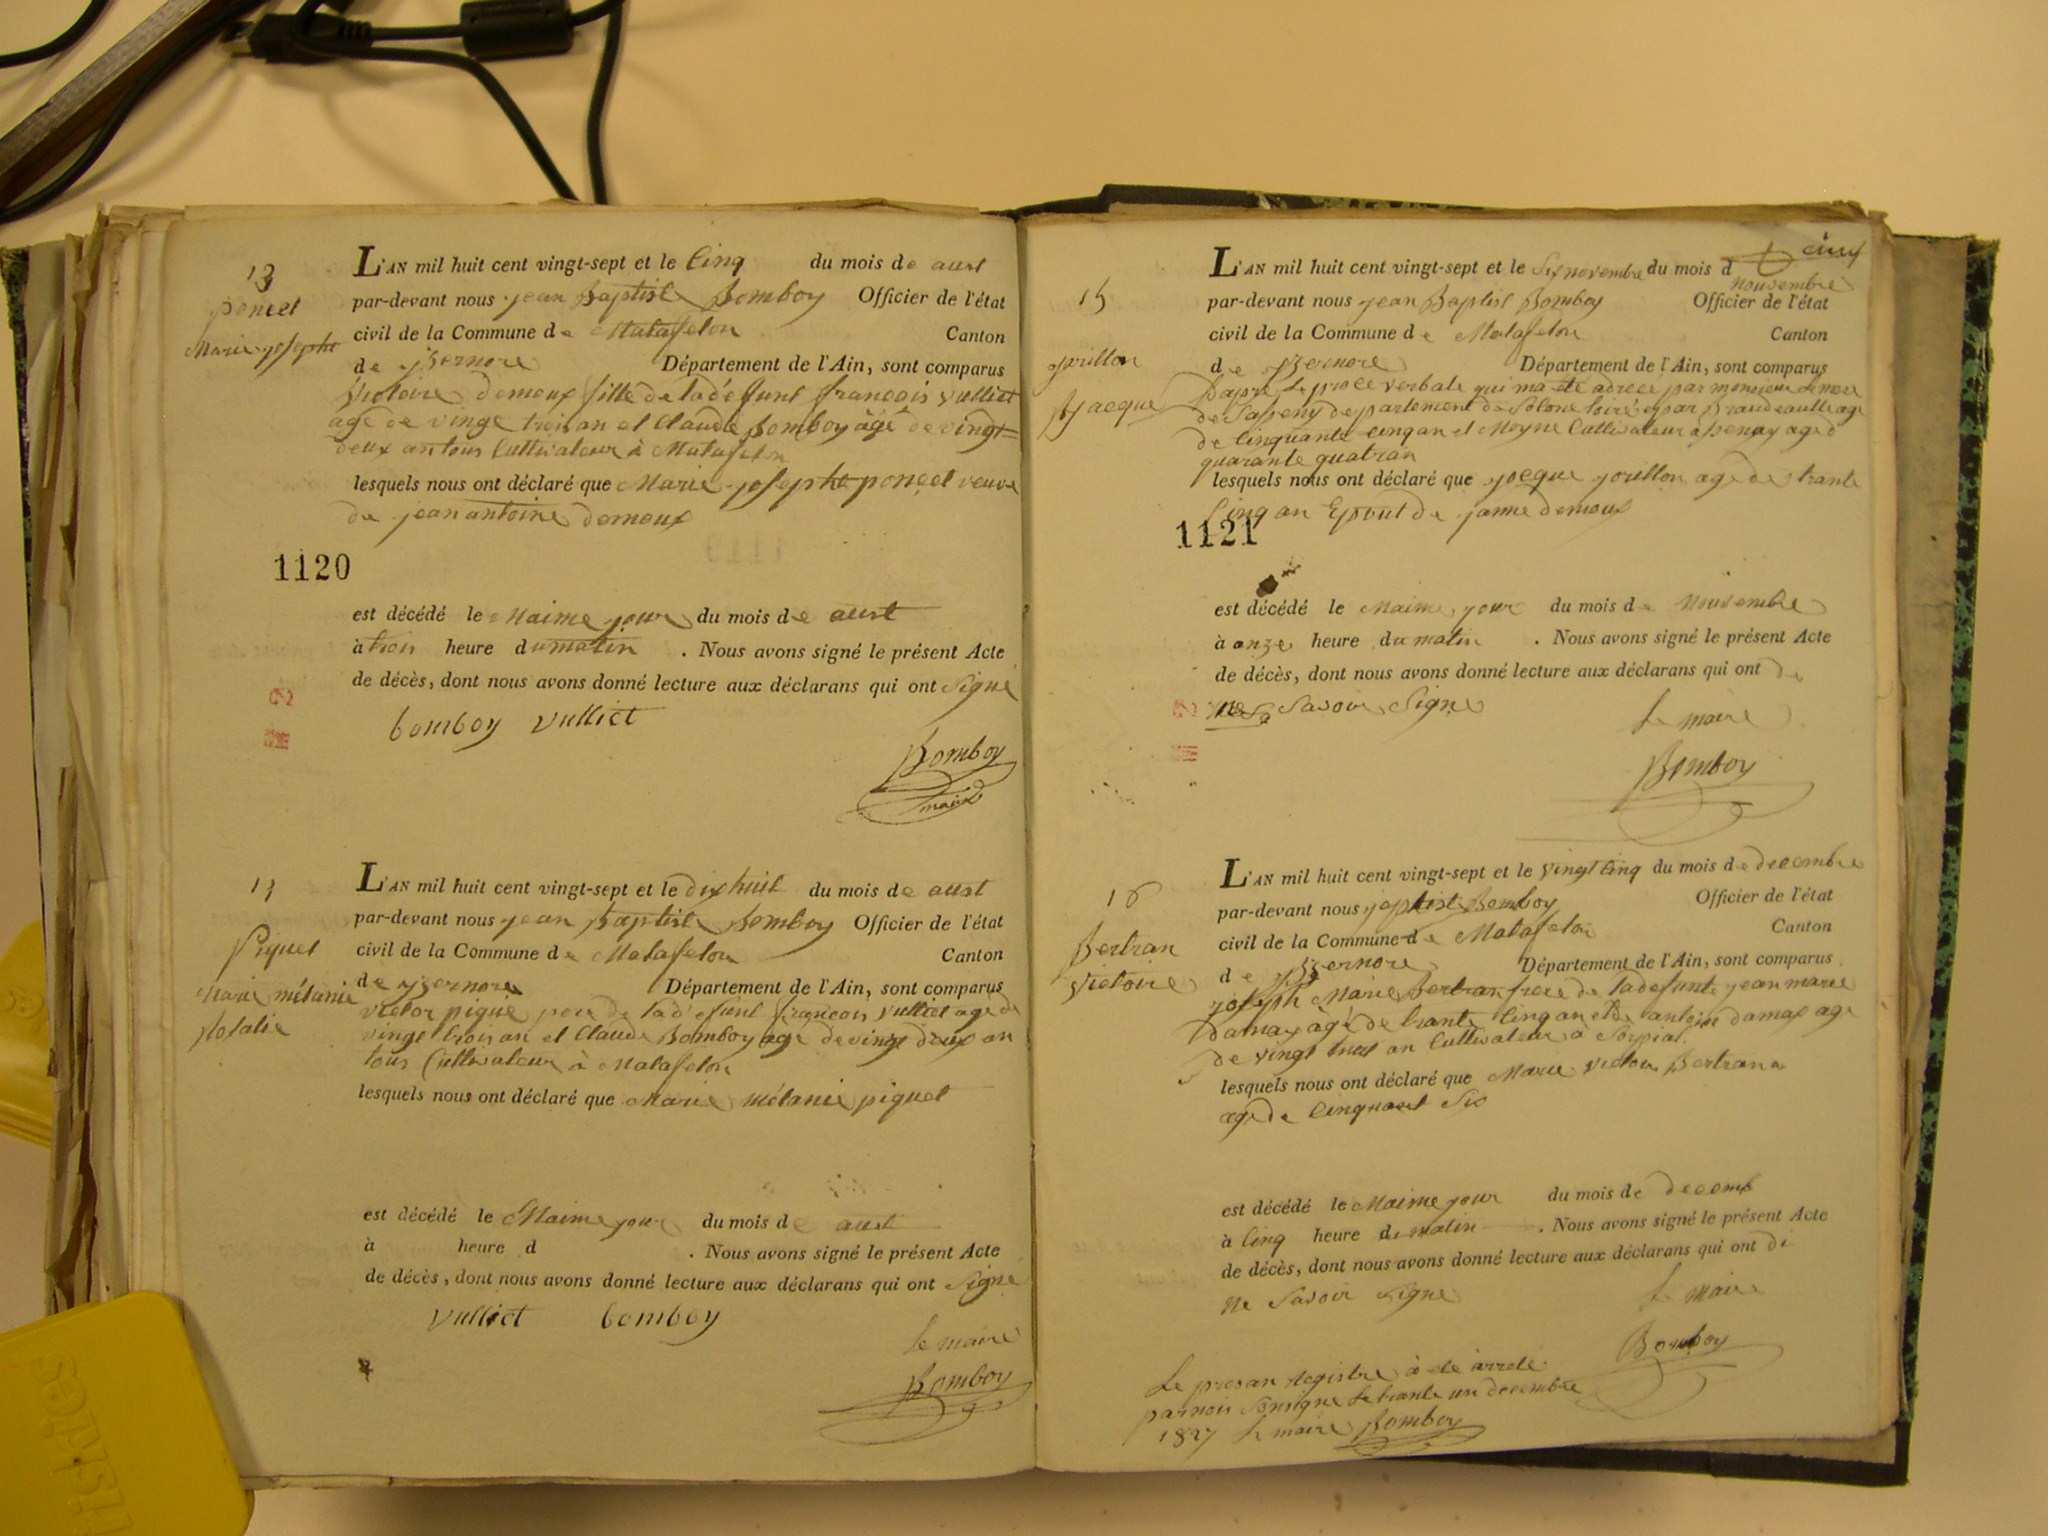 13
poncet
Marie josephe
L'AN mil huit cent vingt-sept et le Cinq du mois de aust
par-devant nous jean Baptiste Bomboy Officier de l'état
civil de la Commune de Matafelon Canton
de yzernore Département de l'Ain, sont comparus
victoire demoux fille de la défunt francois vulliet
agé de vingt trois an et Claude Bomboy âgé de vingt=
deux an tous Cultivateur à Matafelon
lesquels nous ont déclaré que Marie josephte poncet veuve
de jean antoine demoux
1120
est décédé le Maime jour du mois de aust
à trois heure du matin . Nous avons signé le présent Acte
de décès, dont nous avons donné lecture aux déclarans qui ont Signé
bomboy vulliet
Bomboy
maire
Piquet
Marie mélanie
Rosalie
L'AN mil huit cent vingt-sept et le dix huit du mois de aust
par-devant nous jean Baptiste Bomboy Officier de l'état
civil de la Commune de Matafelon Canton
de yzernore Département de l'Ain, sont comparus
victor piquè pere de la défunt francois vulliet agé de
vingt trois an et Claude Bomboy agé de vingt deux an
tous Cultivateur à Matafelon
lesquels nous ont déclaré que Marie mélanie piquet
est décédé le Maime jour du mois de aust
à heure d . Nous avons signé le présent Acte
de décès, dont nous avons donné lecture aux déclarans qui ont Signé
vulliet bomboy
le maire
Bomboy
15
jouillon
Jacque
L'AN mil huit cent vingt-sept et le Six novembre du mois d
nouvembre
par-devant nous jean Baptist Bomboy Officier de l'état
civil de la Commune de Matafelon Canton
de yzernore Département de l'Ain, sont comparus
Dapre le proce verbale qui ma ete adrece par monsieur le mere
de departement de Solone loire par agé
de Cinquante cinq an et Moyne Cultivateur agé d
quarante quatran
lesquels nous ont déclaré que jacque jouillon agé de trante
Cinq an Epout de janne demoux
1121
est décédé le Maime jour du mois de Nouvembre
à onze heure du matin . Nous avons signé le présent Acte
de décès, dont nous avons donné lecture aux déclarans qui ont de
Savoir Signe
Le maire
Bomboy
16
Bertran
Victoire
L'AN mil huit cent vingt-sept et le vingt Cinq du mois de decembre
par-devant nous japtist Bomboy Officier de l'état
civil de la Commune de Matafelon Canton
de yzernore Département de l'Ain, sont comparus
joseph Marie Bertran frere de la defunte jean marie
Damax âgé de trante Cinq an et de antoine damax age
de vingt an Cultivateur à
lesquels nous ont déclaré que Marie victoire Bertran
agé de Cinquant Six
est décédé le Maime jour du mois de decemb
à Cinq heure du matin . Nous avons signé le présent Acte
de décès, dont nous avons donné lecture aux déclarans qui ont di
Ne Savoir Signe
Le maire
Bomboy
Le presan Registre à ete arreté
par nous Sousigne Le trante un decembre
1827 Le maire Bomboy